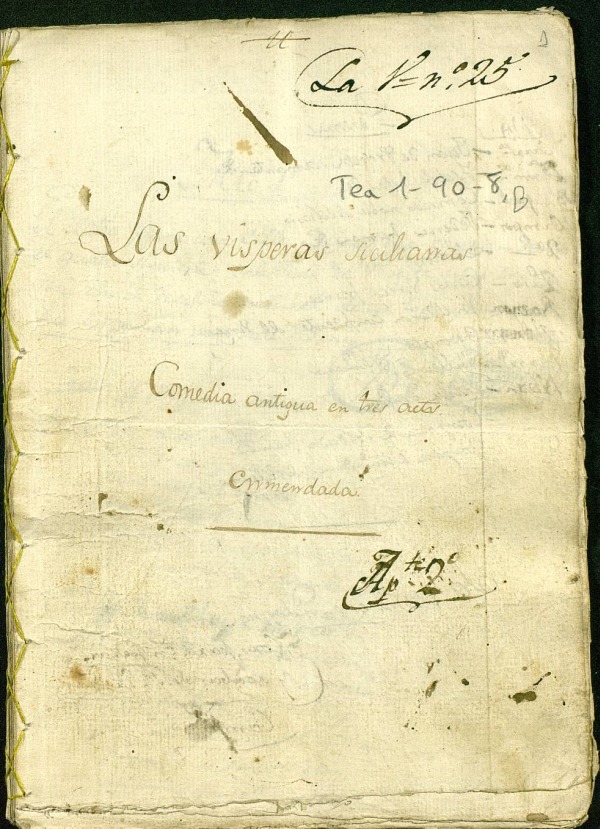 La V= n.º 25
Tea 1-90-8, B
Las visperas sicilianas
Comedia antigua en tres actos
Enmendada
Ap.te 2º